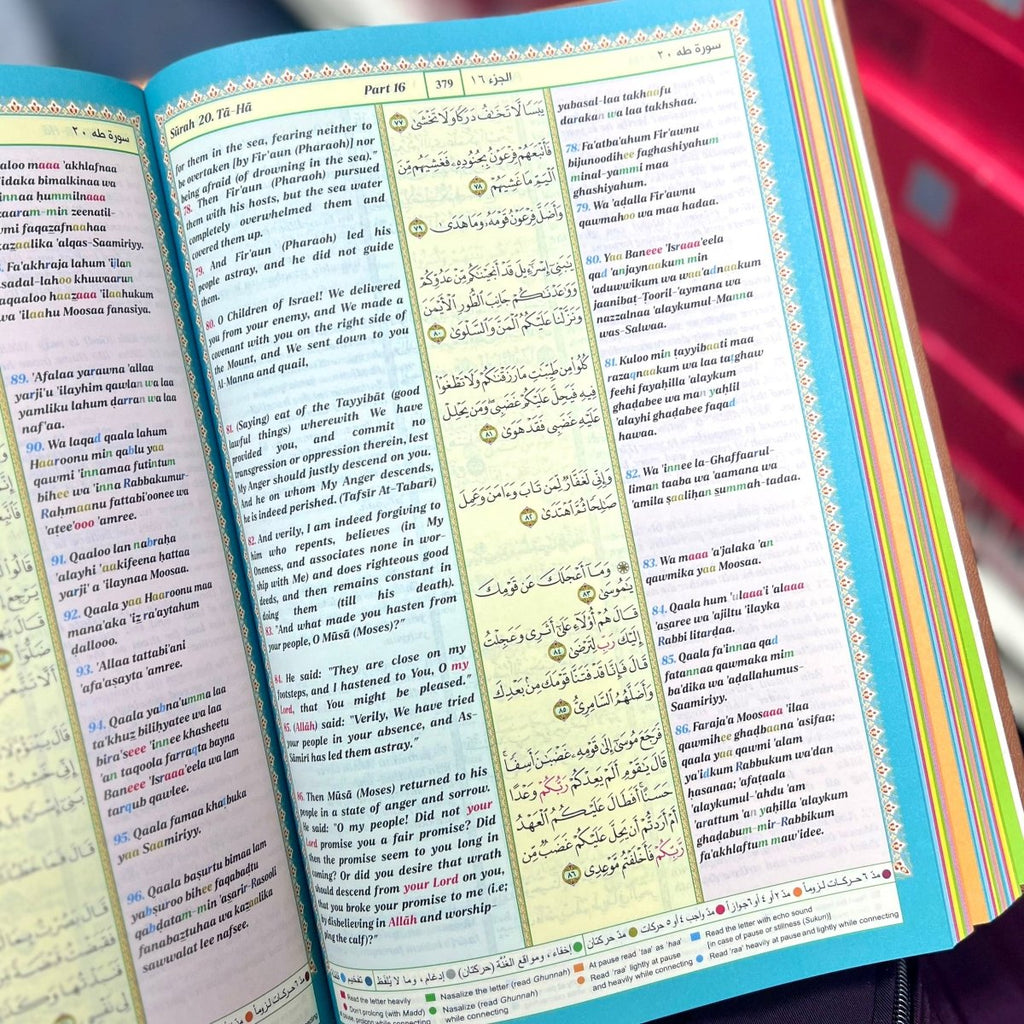 سورة طه ٢٠
'aloo maaa 'akhlafnaa
'idaka bimalkinaa wa
innaa hummilnaaa
zaaram-min zeenatil-
wmi faqazafnaahaa
kazaalika 'alqas-Saamiriyy.
Fa'akhraja lahum 'ijlan
asadal-lahoo khuwaarun
aqaaloo haazaaa 'ilaahukum
wa 'ilaahu Moosaa fanasiya.
89. 'Afalaa yarawna 'allaa
yarji'u 'ilayhim qawlan wa laa
yamliku lahum ḍarran wa laa
naf'aa.
90. Wa laqad qaala lahum
Haaroonu min qablu yaa
qawmi 'innamaa futintum
bihee wa 'inna Rabbakumur-
Raḥmaanu fattabi'oonee wa
'aṭee'ooo 'amree.
91. Qaaloo lan nabraḥa
'alayhi 'aakifeena ḥattaa
yarji' a 'ilaynaa Moosaa.
92. Qaala yaa Haaroonu maa
mana'aka 'iẓ ra'aytahum
dallooo.
93. 'Allaa tattabi'ani
'afa'aṣayta 'amree.
94. Qaala yabna'umma laa
ta'khuz bilihyatee wa laa
bira'seee 'innee khasheetu
'an taqoola farraqta bayna
Baneee 'Israaa'eela wa lam
tarqub qawlee.
95. Qaala famaa khaṭbuka
yaa Saamiriyy.
96. Qaala baṣurtu bimaa lam
yabṣuroo bihee faqabaḍtu
qabḍatam-min 'aṣarir-Rasooli
fanabaztuhaa wa kazaalika
sawwalat lee nafsee.
Sûrah 20. Tā-Hā
Part 16
379
الجزء ١٦
سورة طه ٢٠
for them in the sea, fearing neither to
be overtaken [by Fir'aun (Pharaoh)] nor
being afraid (of drowning in the sea)."
78. Then Fir'aun (Pharaoh) pursued
them with his hosts, but the sea water
completely overwhelmed them and
covered them up.
79. And Fir'aun (Pharaoh) led his
people astray, and he did not guide
them.
80. O Children of Israel! We delivered
you from your enemy, and We made a
covenant with you on the right side of
the Mount, and We sent down to you
Al-Manna and quail,
81. (Saying) eat of the Tayyibāt (good
lawful things) wherewith We have
provided you, and commit no
transgression or oppression therein, lest
My Anger should justly descend on you.
And he on whom My Anger descends,
he is indeed perished. (Tafsir At-Tabari)
82. And verily, I am indeed forgiving to
him who repents, believes (in My
Oneness, and associates none in wor-
ship with Me) and does righteous good
deeds, and then remains constant in
doing them (till his death).
83. "And what made you hasten from
your people, O Mūsā (Moses)?"
84. He said: "They are close on my
footsteps, and I hastened to You, O my
Lord, that You might be pleased."
85. (Allāh) said: "Verily, We have tried
your people in your absence, and As-
Sāmirī has led them astray."
86. Then Mūsā (Moses) returned to his
people in a state of anger and sorrow.
He said: "O my people! Did not your
Lord promise you a fair promise? Did
then the promise seem to you long in
coming? Or did you desire that wrath
should descend from your Lord on you,
that you broke your promise to me (i.e;
by disbelieving in Allāh and worship-
ping the calf)?"
يَبَسًا لَّا تَخَافُ دَرَكًا وَلَا تَخْشَىٰ ٧٧
فَأَتْبَعَهُمْ فِرْعَوْنُ بِجُنُودِهِۦ فَغَشِيَهُم مِّنَ
ٱلْيَمِّ مَا غَشِيَهُمْ ٧٨
وَأَضَلَّ فِرْعَوْنُ قَوْمَهُۥ وَمَا هَدَىٰ ٧٩
يَـٰبَنِىٓ إِسْرَٰٓءِيلَ قَدْ أَنجَيْنَـٰكُم مِّنْ عَدُوِّكُمْ
وَوَٰعَدْنَـٰكُمْ جَانِبَ ٱلطُّورِ ٱلْأَيْمَنَ
وَنَزَّلْنَا عَلَيْكُمُ ٱلْمَنَّ وَٱلسَّلْوَىٰ ٨٠
كُلُوا۟ مِن طَيِّبَـٰتِ مَا رَزَقْنَـٰكُمْ وَلَا تَطْغَوْا۟
فِيهِ فَيَحِلَّ عَلَيْكُمْ غَضَبِى وَمَن يَحْلِلْ
عَلَيْهِ غَضَبِى فَقَدْ هَوَىٰ ٨١
وَإِنِّى لَغَفَّارٌ لِّمَن تَابَ وَءَامَنَ وَعَمِلَ
صَـٰلِحًا ثُمَّ ٱهْتَدَىٰ ٨٢
وَمَآ أَعْجَلَكَ عَن قَوْمِكَ
يَـٰمُوسَىٰ ٨٣
قَالَ هُمْ أُو۟لَآءِ عَلَىٰٓ أَثَرِى وَعَجِلْتُ
إِلَيْكَ رَبِّ لِتَرْضَىٰ ٨٤
قَالَ فَإِنَّا قَدْ فَتَنَّا قَوْمَكَ مِنۢ بَعْدِكَ
وَأَضَلَّهُمُ ٱلسَّامِرِىُّ ٨٥
فَرَجَعَ مُوسَىٰٓ إِلَىٰ قَوْمِهِۦ غَضْبَـٰنَ أَسِفًا
قَالَ يَـٰقَوْمِ أَلَمْ يَعِدْكُمْ رَبُّكُمْ وَعْدًا
حَسَنًا أَفَطَالَ عَلَيْكُمُ ٱلْعَهْدُ
أَمْ أَرَدتُّمْ أَن يَحِلَّ عَلَيْكُمْ غَضَبٌ مِّن
رَّبِّكُمْ فَأَخْلَفْتُم مَّوْعِدِى ٨٦
yabasal-laa takhaafu
darakan wa laa takhshaa.
78. Fa'atba'ahum Fir'awnu
bijunoodihee faghashiyahum
minal-yammi maa
ghashiyahum.
79. Wa 'aḍalla Fir'awnu
qawmahoo wa maa hadaa.
80. Yaa Baneee 'Israaa'eela
qad 'anjaynaakum min
'aduwwikum wa waa'adnaakum
jaanibaṭ-Ṭooril-'aymana wa
nazzalnaa 'alaykumul-Manna
was-Salwaa.
81. Kuloo min ṭayyibaati maa
razaqnaakum wa laa taṭghaw
feehi fayaḥilla 'alaykum
ghaḍabee wa many yaḥlil
'alayhi ghaḍabee faqad
hawaa.
82. Wa 'innee la-Ghaffaarul-
liman taaba wa 'aamana wa
'amila ṣaaliḥan ṣummah-tadaa.
83. Wa maaa 'a'jalaka 'an
qawmika yaa Moosaa.
84. Qaala hum 'ulaaa'i 'alaaa
'aṣaree wa 'ajiltu 'ilayka
Rabbi litarḍaa.
85. Qaala fa'innaa qad
fatannaa qawmaka mim
ba'dika wa 'aḍallahumus-
Saamiriyy.
86. Faraja'a Moosaaa 'ilaa
qawmihee ghaḍbaana 'asifaa;
qaala yaa qawmi 'alam
ya'idkum Rabbukum wa'dan
ḥasanaa; 'afaṭaala
'alaykumul-'ahdu 'am
'arattum 'any yaḥilla 'alaykum
ghaḍabum-mir-Rabbikum
fa'akhlaftum maw'idee.
مدّ ٦ حركات لزوماً
مدّ ٢ أو ٤ أو ٦ جوازاً
مدّ واجب ٤ أو ٥ حركات
مدّ حركتان
إخفاء، ومواقع الغُنَّة (حركتان)
إدغام، وما لا يُلفظ
تفخيم
Read the letter heavily
Don't prolong (with Madd)
Nasalize the letter (read Ghunnah)
Nasalize (read Ghunnah)
while connecting
At pause read 'taa' as 'haa'
Read 'raa' lightly at pause
and heavily while connecting
Read the letter with echo sound
[in case of pause or stillness (Sukun)]
Read 'raa' heavily at pause and lightly while connecting